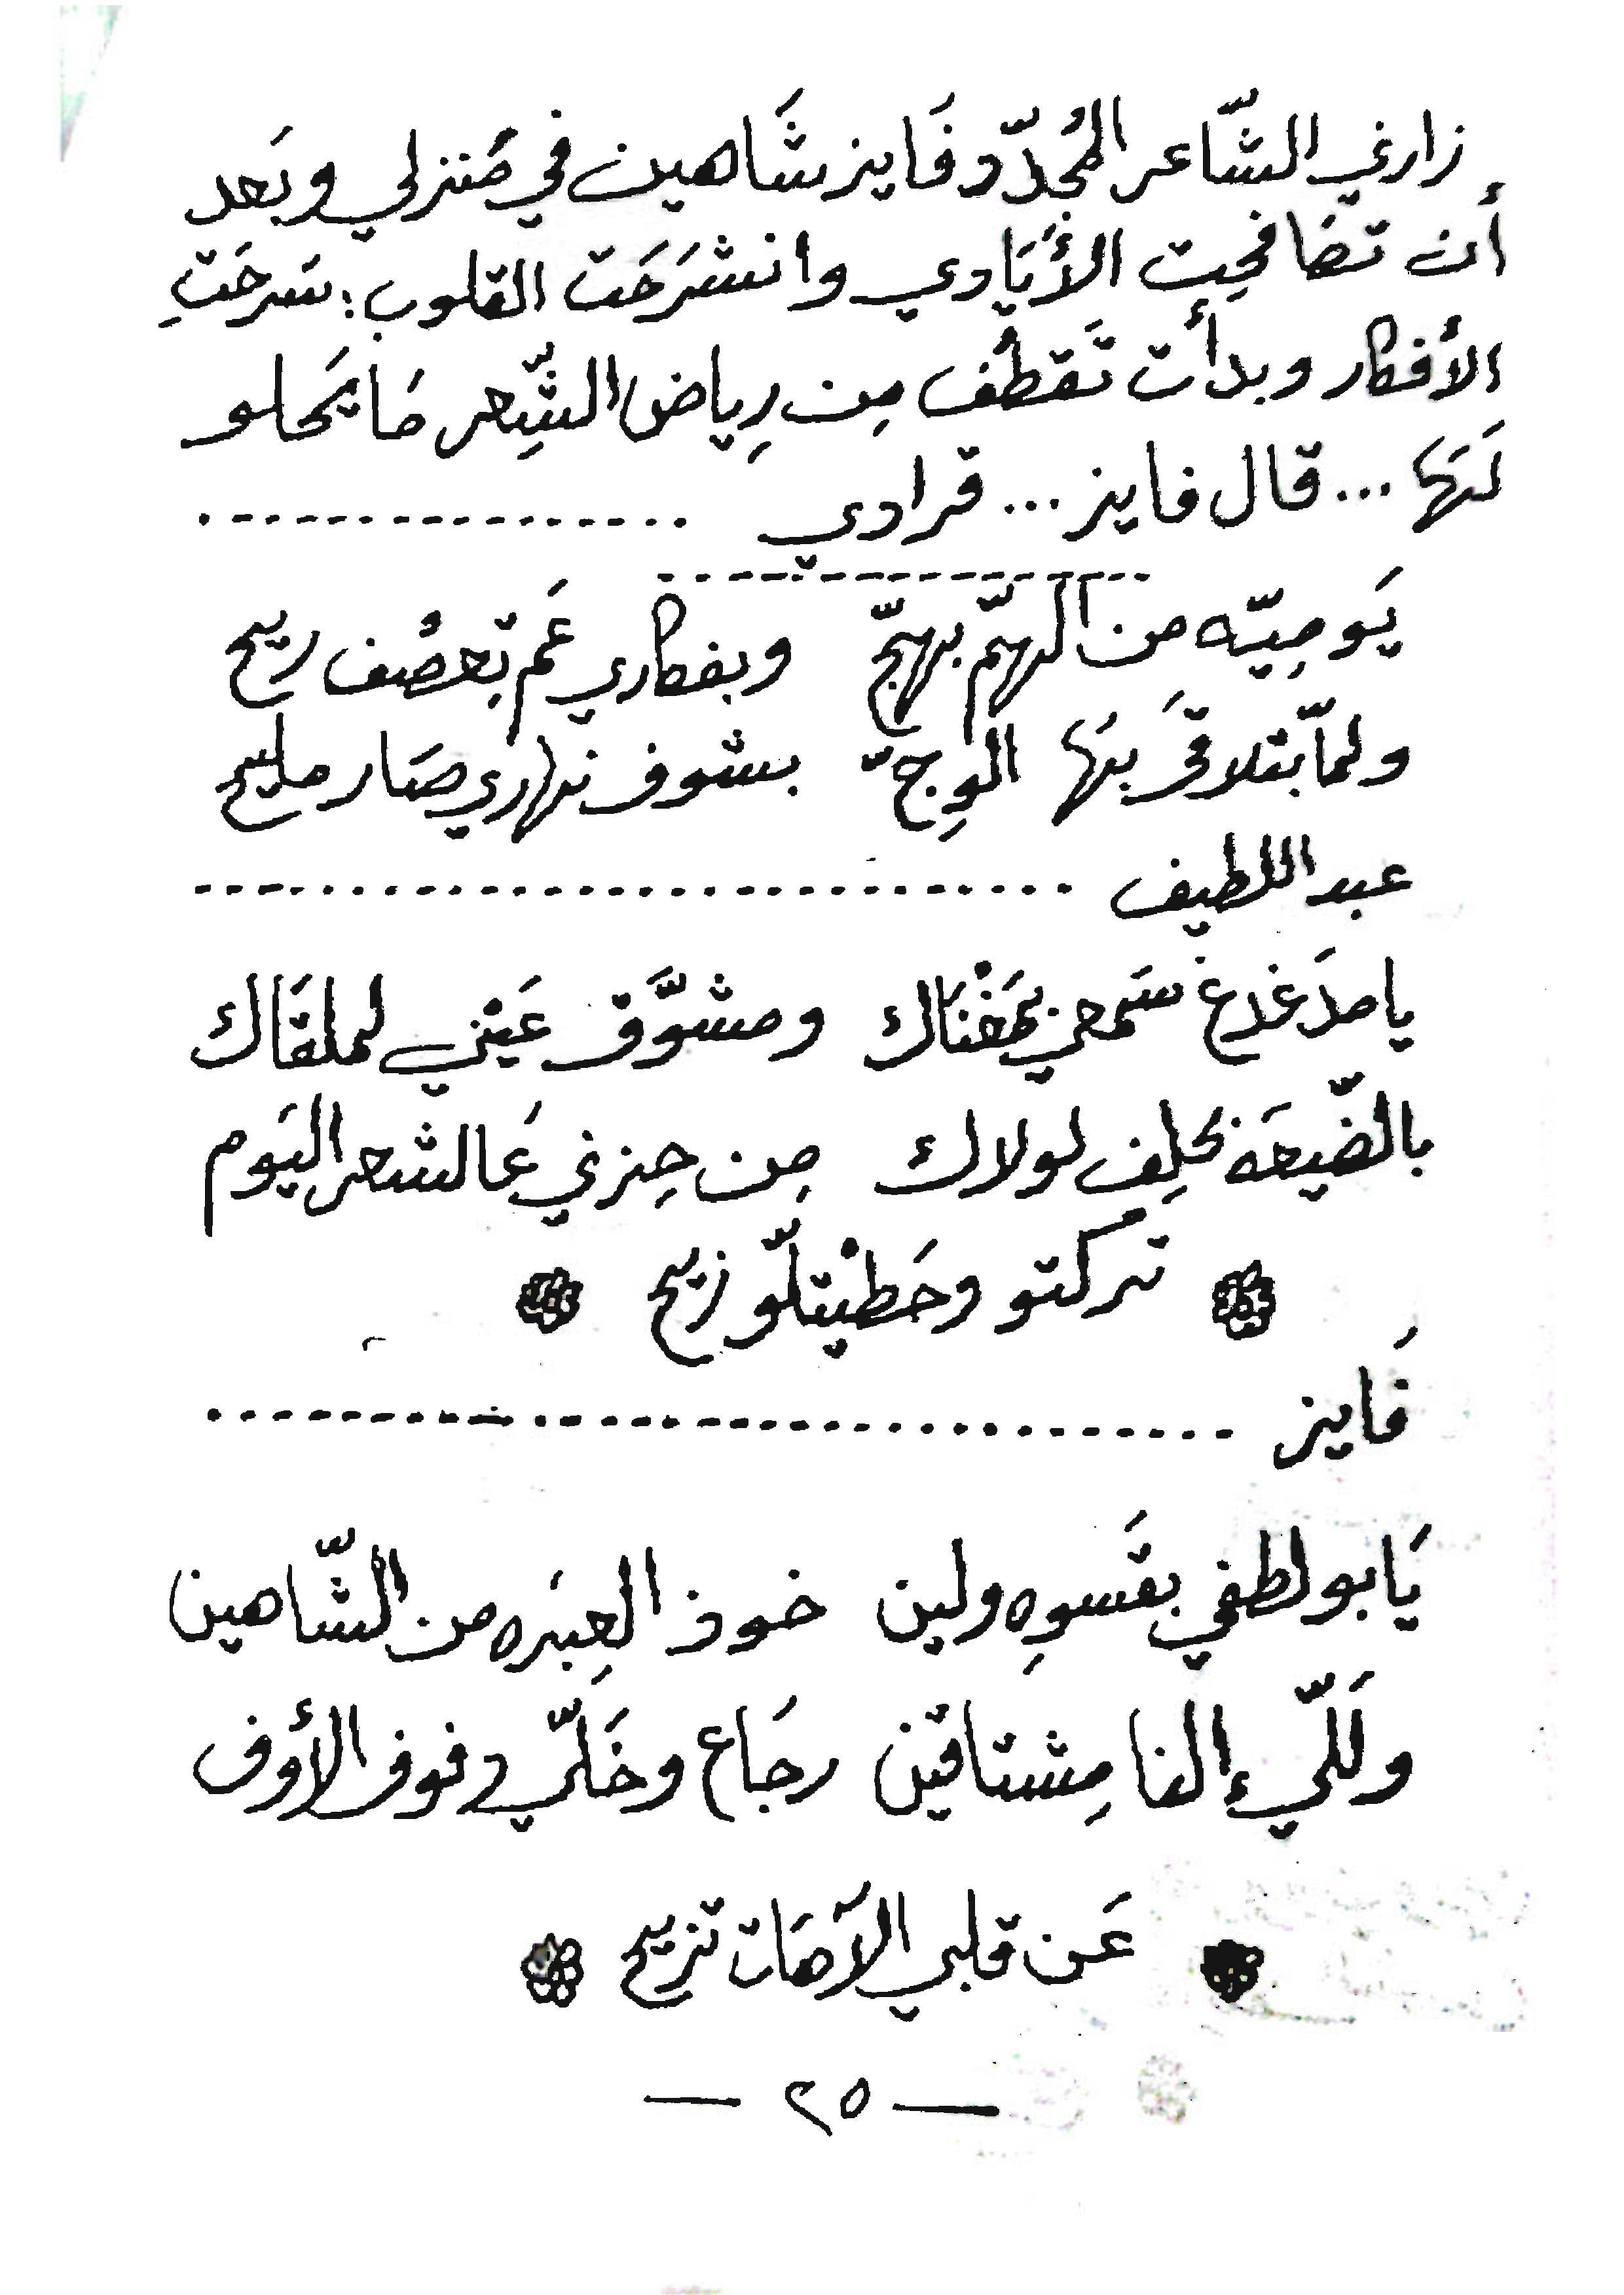 زارني الشّاعر المُجدّد فَايز شَاهين في مَنزلي وبَعد
أن تصَافحِت الأيَادي وانشَرحَت القلوب؛ سَرحَتِ
الأفكار وبدأت تَقطُف مِن رِياض الشِّعر مَا يَحلو
لَهَا ... قال فايز ... قرادي
يَوميّه من الهمّ بهجّ وبفكاري عَم بِتعصُف ريح
ولمّا بتلاقَى بهَا الوِجّ بشوف نهاري صَار مليح
عبد اللطيف
يا مدَغدغ سَمعي بمَغْنَاك ومشوَّق عَيْني لملقَاك
بالضّيعَه بحلِف لولاك مِن حِزني عَالشعر اليَوم
تركتو وحَطيْتلّو زيح
فَايز
يَا بو لطفي بقَسوِه ولين خوذ العِبَره من الشّاهين
ولَلّي إلنا مِشتاقين رجَاع وخَلّي فوق الأوف
عَن قلبي الآهَات تزيح
— ٢٥ —